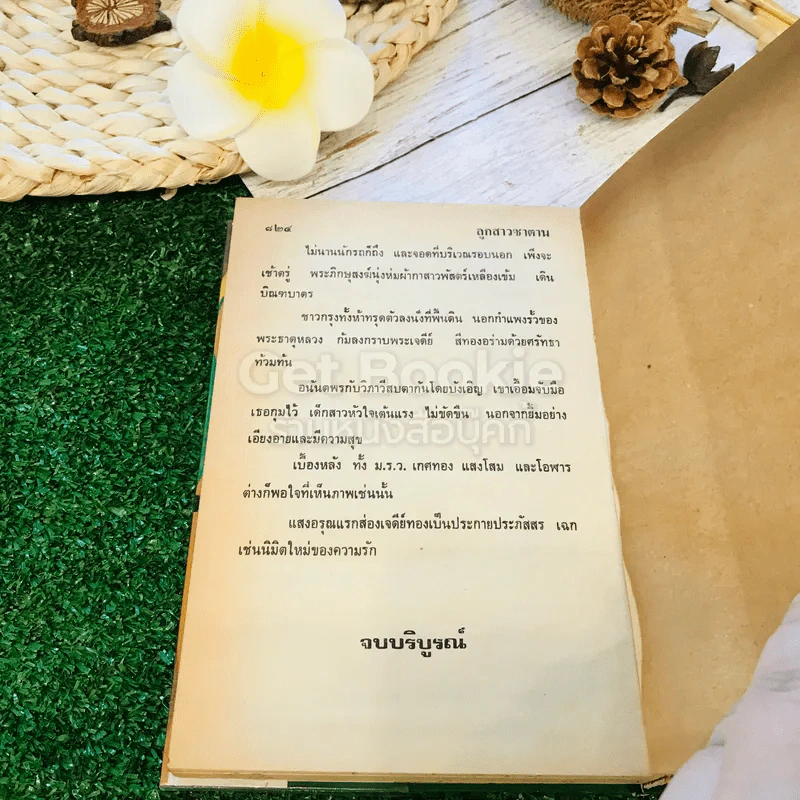 ๘๒๔ ลูกสาวซาตาน
ไม่นานนักรถก็ถึง และจอดที่บริเวณรอบนอก เพิ่งจะ
เช้าตรู่ พระภิกษุสงฆ์นุ่งห่มผ้ากาสาวพัสตร์เหลืองเข้ม เดิน
บิณฑบาตร
ชาวกรุงทั้งห้าทรุดตัวลงนั่งที่พื้นดิน นอกกำแพงรั้วของ
พระธาตุหลวง ก้มลงกราบพระเจดีย์ สีทองอร่ามด้วยศรัทธา
ท้วมท้น
Get Bookie
อนันตพรกับวิภาวีสบตากันโดยบังเอิญ เขาเอื้อมจับมือ
เธอกุมไว้ เด็กสาวหัวใจเต้นแรง ไม่ขัดขืน นอกจากยิ้มอย่าง
ร้านหนังสือบุ๊คกี้
เอียงอายและมีความสุข
เบื้องหลัง ทั้ง ม.ร.ว. เกศทอง แสงโสม และโอฬาร
ต่างก็พอใจที่เห็นภาพเช่นนั้น
แสงอรุณแรกส่องเจดีย์ทองเป็นประกายประภัสสร เฉก
เช่นนิมิตใหม่ของความรัก
จบบริบูรณ์